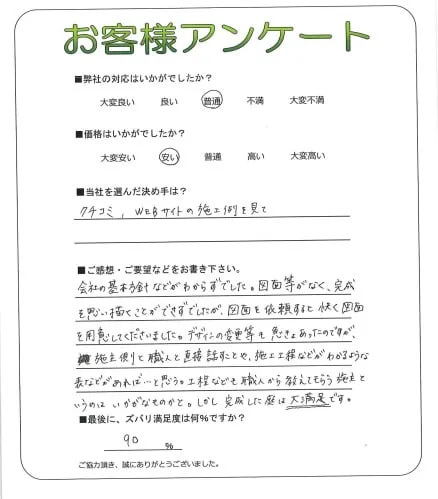 お客様アンケート
■弊社の対応はいかがでしたか?
大変良い 良い 普通 不満 大変不満
■価格はいかがでしたか?
大変安い 安い 普通 高い 大変高い
■当社を選んだ決め手は?
クチコミ, WEBサイトの施工例を見て
■ご感想・ご要望などをお書き下さい。
会社の基本方針などがわからずでした。図面等がなく、完成
を思い描くことができずでしたが、図面を依頼すると快く図面
を用意してくださいました。デザインの変更等も
あったのですが、
施主側と職人と直接話すことや、施工工程などがわかるような
表などがあれば…と思う。工程なども職人から教えてもらう施主と
いうのはいかがなものかと。しかし完成した庭は大満足です。
■最後に、ズバリ満足度は何%ですか?
90 %
ご協力頂き、誠にありがとうございました。